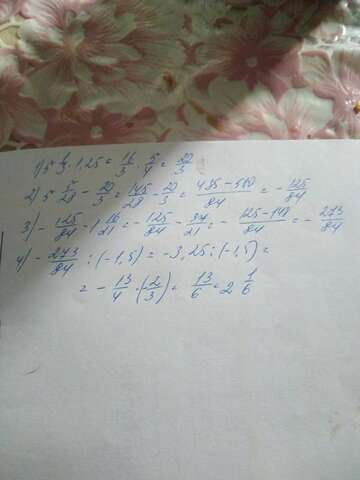 1) 5 1/3 · 1,25 = 16/3 · 5/4 = 20/3
2) 5 5/28 - 20/3 = 145/28 - 20/3 = 435-560/84 = - 125/84
3) - 125/84 - 1 16/21 = - 125/84 - 37/21 = - 125-148/84 = - 273/84
4) - 273/84 : (-1,5) = -3,25 : (-1,5) =
= - 13/4 · (2/3) = 13/6 = 2 1/6